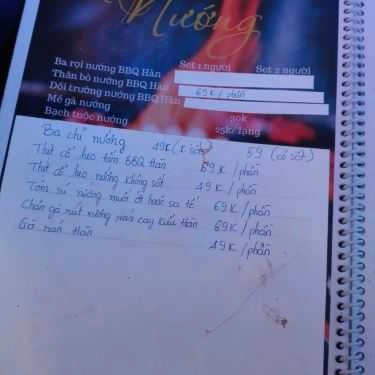 Nướng
Set 1 người Set 2 người
Ba rọi nướng BBQ Hàn
Thăn bò nướng BBQ Hàn
Dồi trường nướng BBQ Hàn 69K / phần
Mề gà nướng 30k
Bạch tuộc nướng 25k/1ạng
Ba chỉ nướng 49K (K sốt) 59 (có sốt)
Thịt cổ heo tảm BBQ Hàn 69K / phần
Thịt cổ heo nướng không sốt 49K / phần
Tôm sú nướng muối ớt hoặc sa tế 69K / phần
Chân gà rút xương phô mai cay kiểu Hàn 69K / phần
Gà Hàn 49K / phần